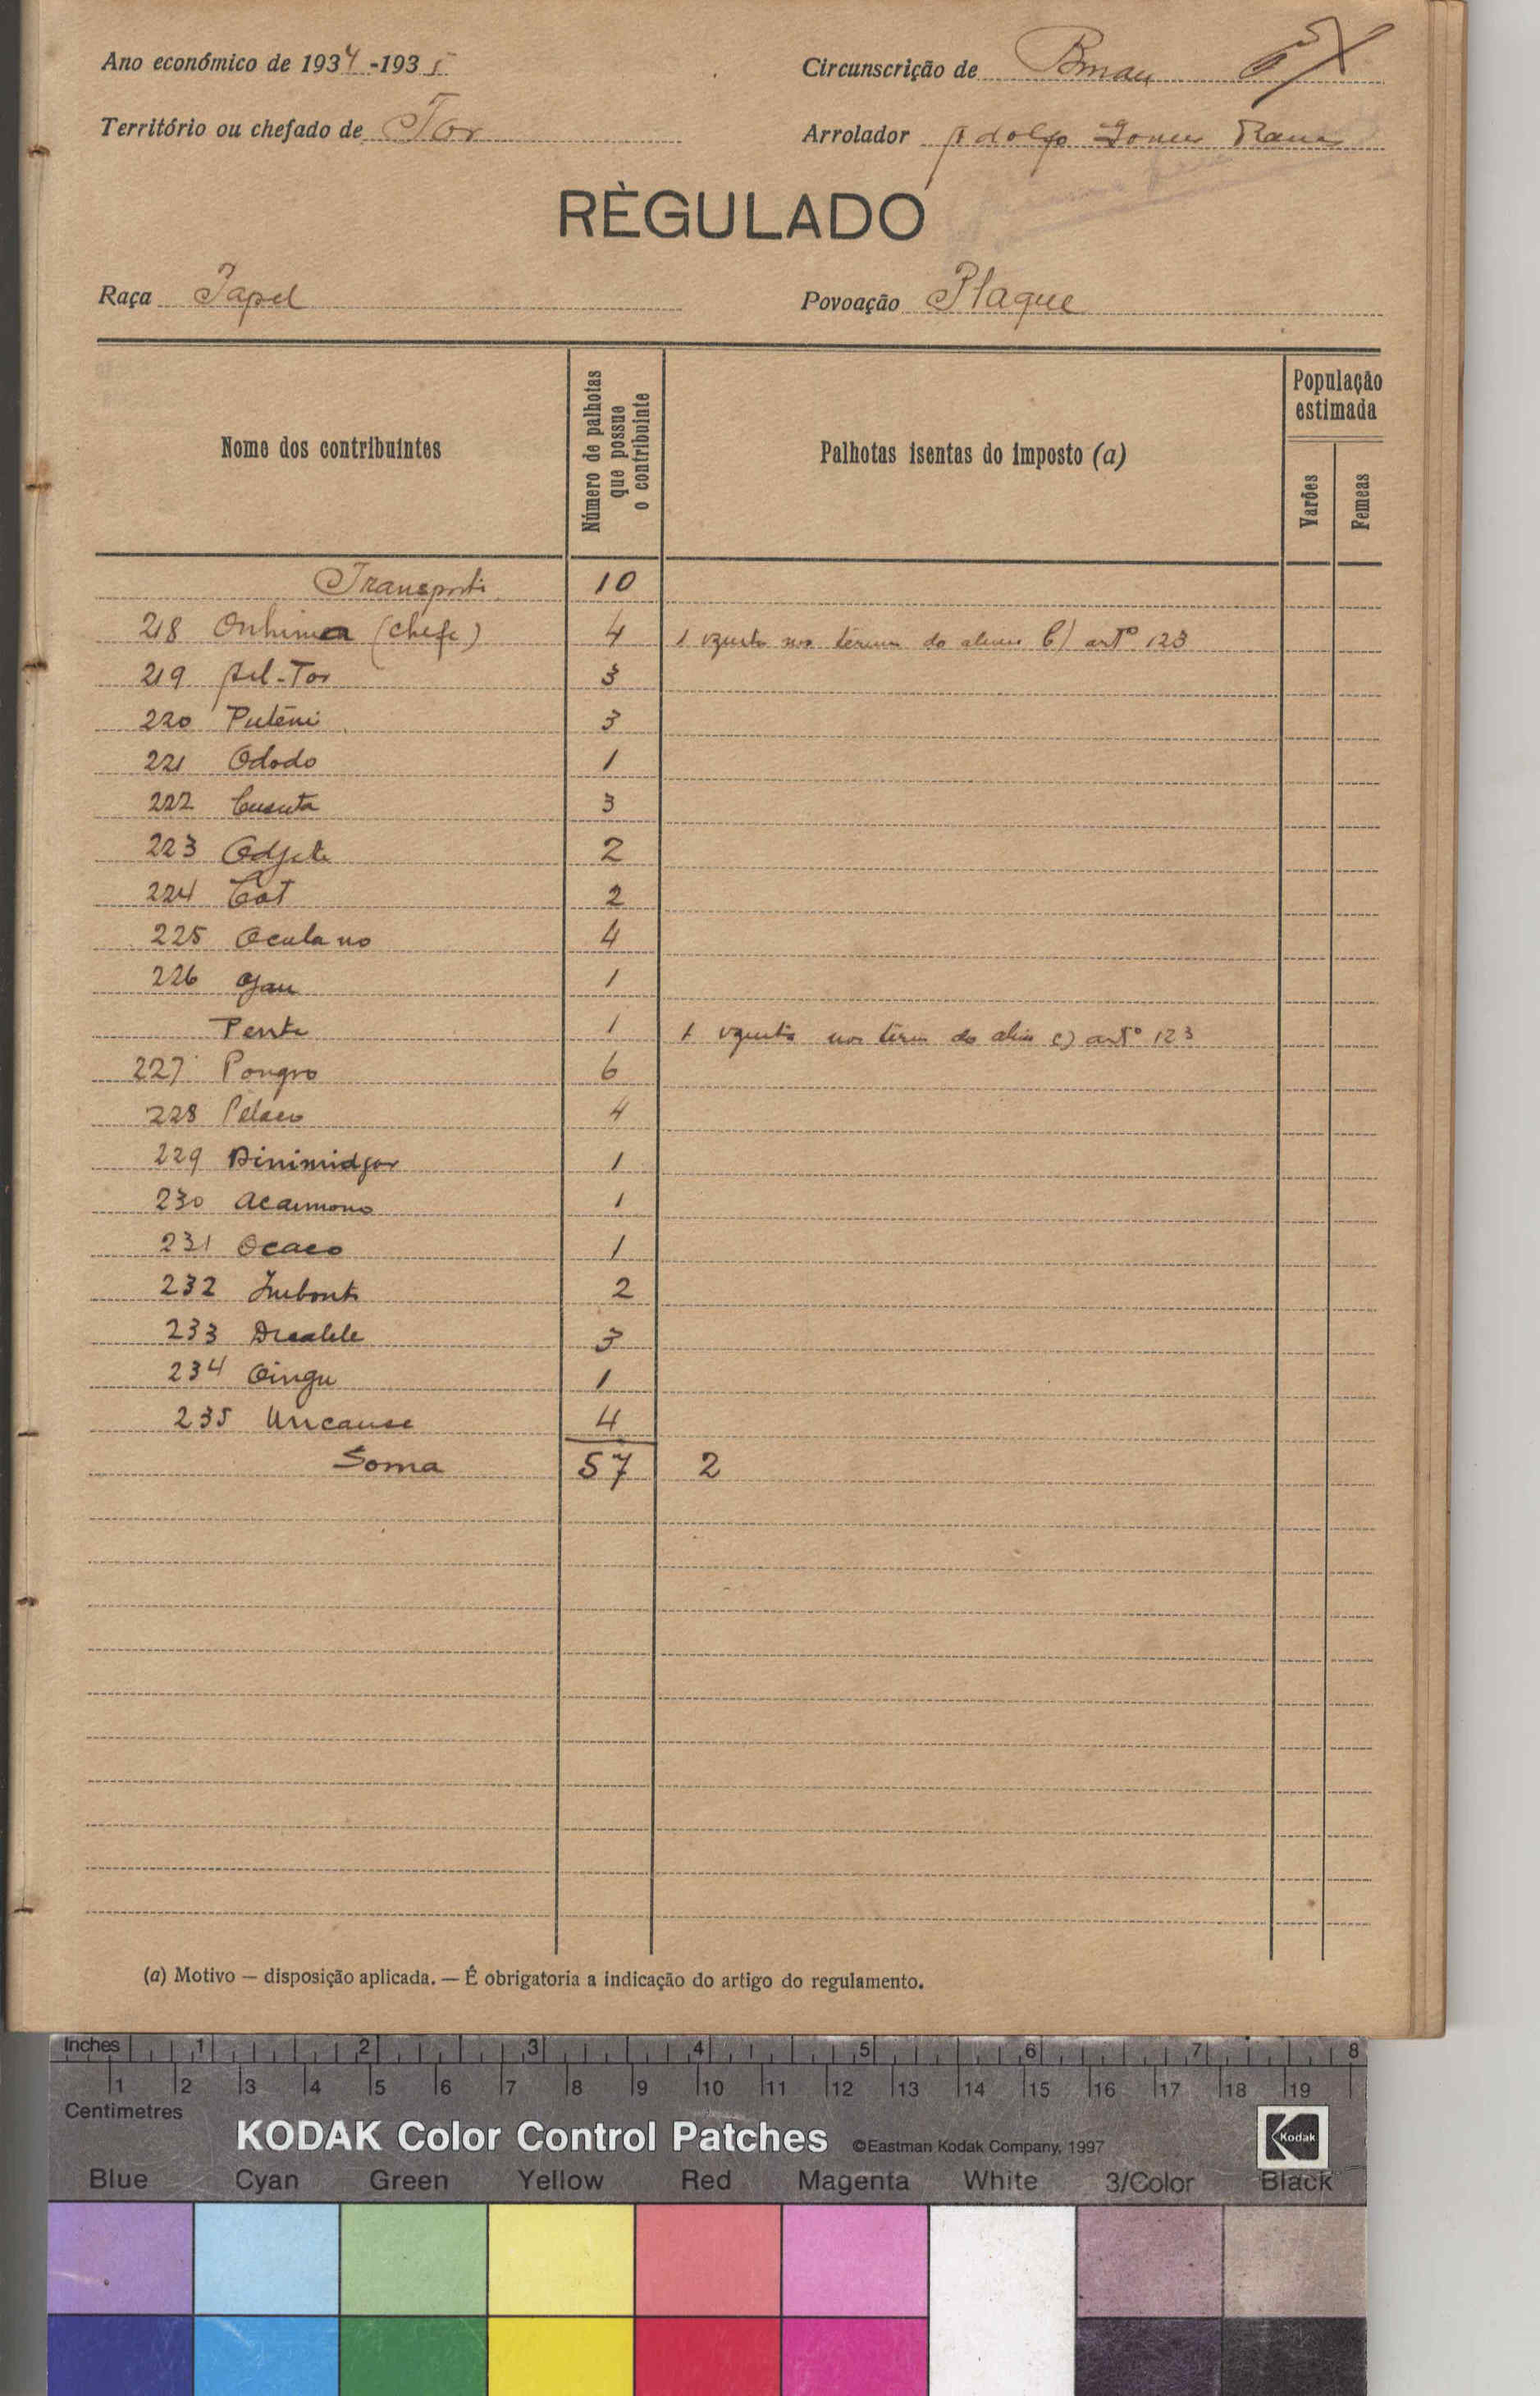 Ano económico de 1934-1935
Circunscrição de
Território ou chefado de Tor
Arrolador Adolfo Gomes Ramos
RÈGULADO
Raça Papel
Povoação Plaque
Nome dos contribuintes
Número de palhotas que possue o contribuinte
Palhotas isentas do imposto (a)
População estimada
Varões
Femeas
Transporte 10
218 Onhima (chefe) 4 1 nos termos da alinea b) artº 123
219 Tor 3
220 Puténi 3
221 Ododo 1
222 3
223 2
224 Cot 2
225 Oculano 4
226 1
Pente 1 1 nos da c) artº 123
227 Pongro 6
228 4
229 Dinimidjor 1
230 Acaimono 1
231 Ocaco 1
232 2
233 3
234 Oingu 1
235 4
Soma 57 2
(a) Motivo — disposição aplicada. — É obrigatoria a indicação do artigo do regulamento.
Inches 1 2 3 4 5 6 7 8
1 2 3 4 5 6 7 8 9 10 11 12 13 14 15 16 17 18 19
Centimetres
KODAK Color Control Patches ©Eastman Kodak Company, 1997 Kodak
Blue Cyan Green Yellow Red Magenta White 3/Color Black